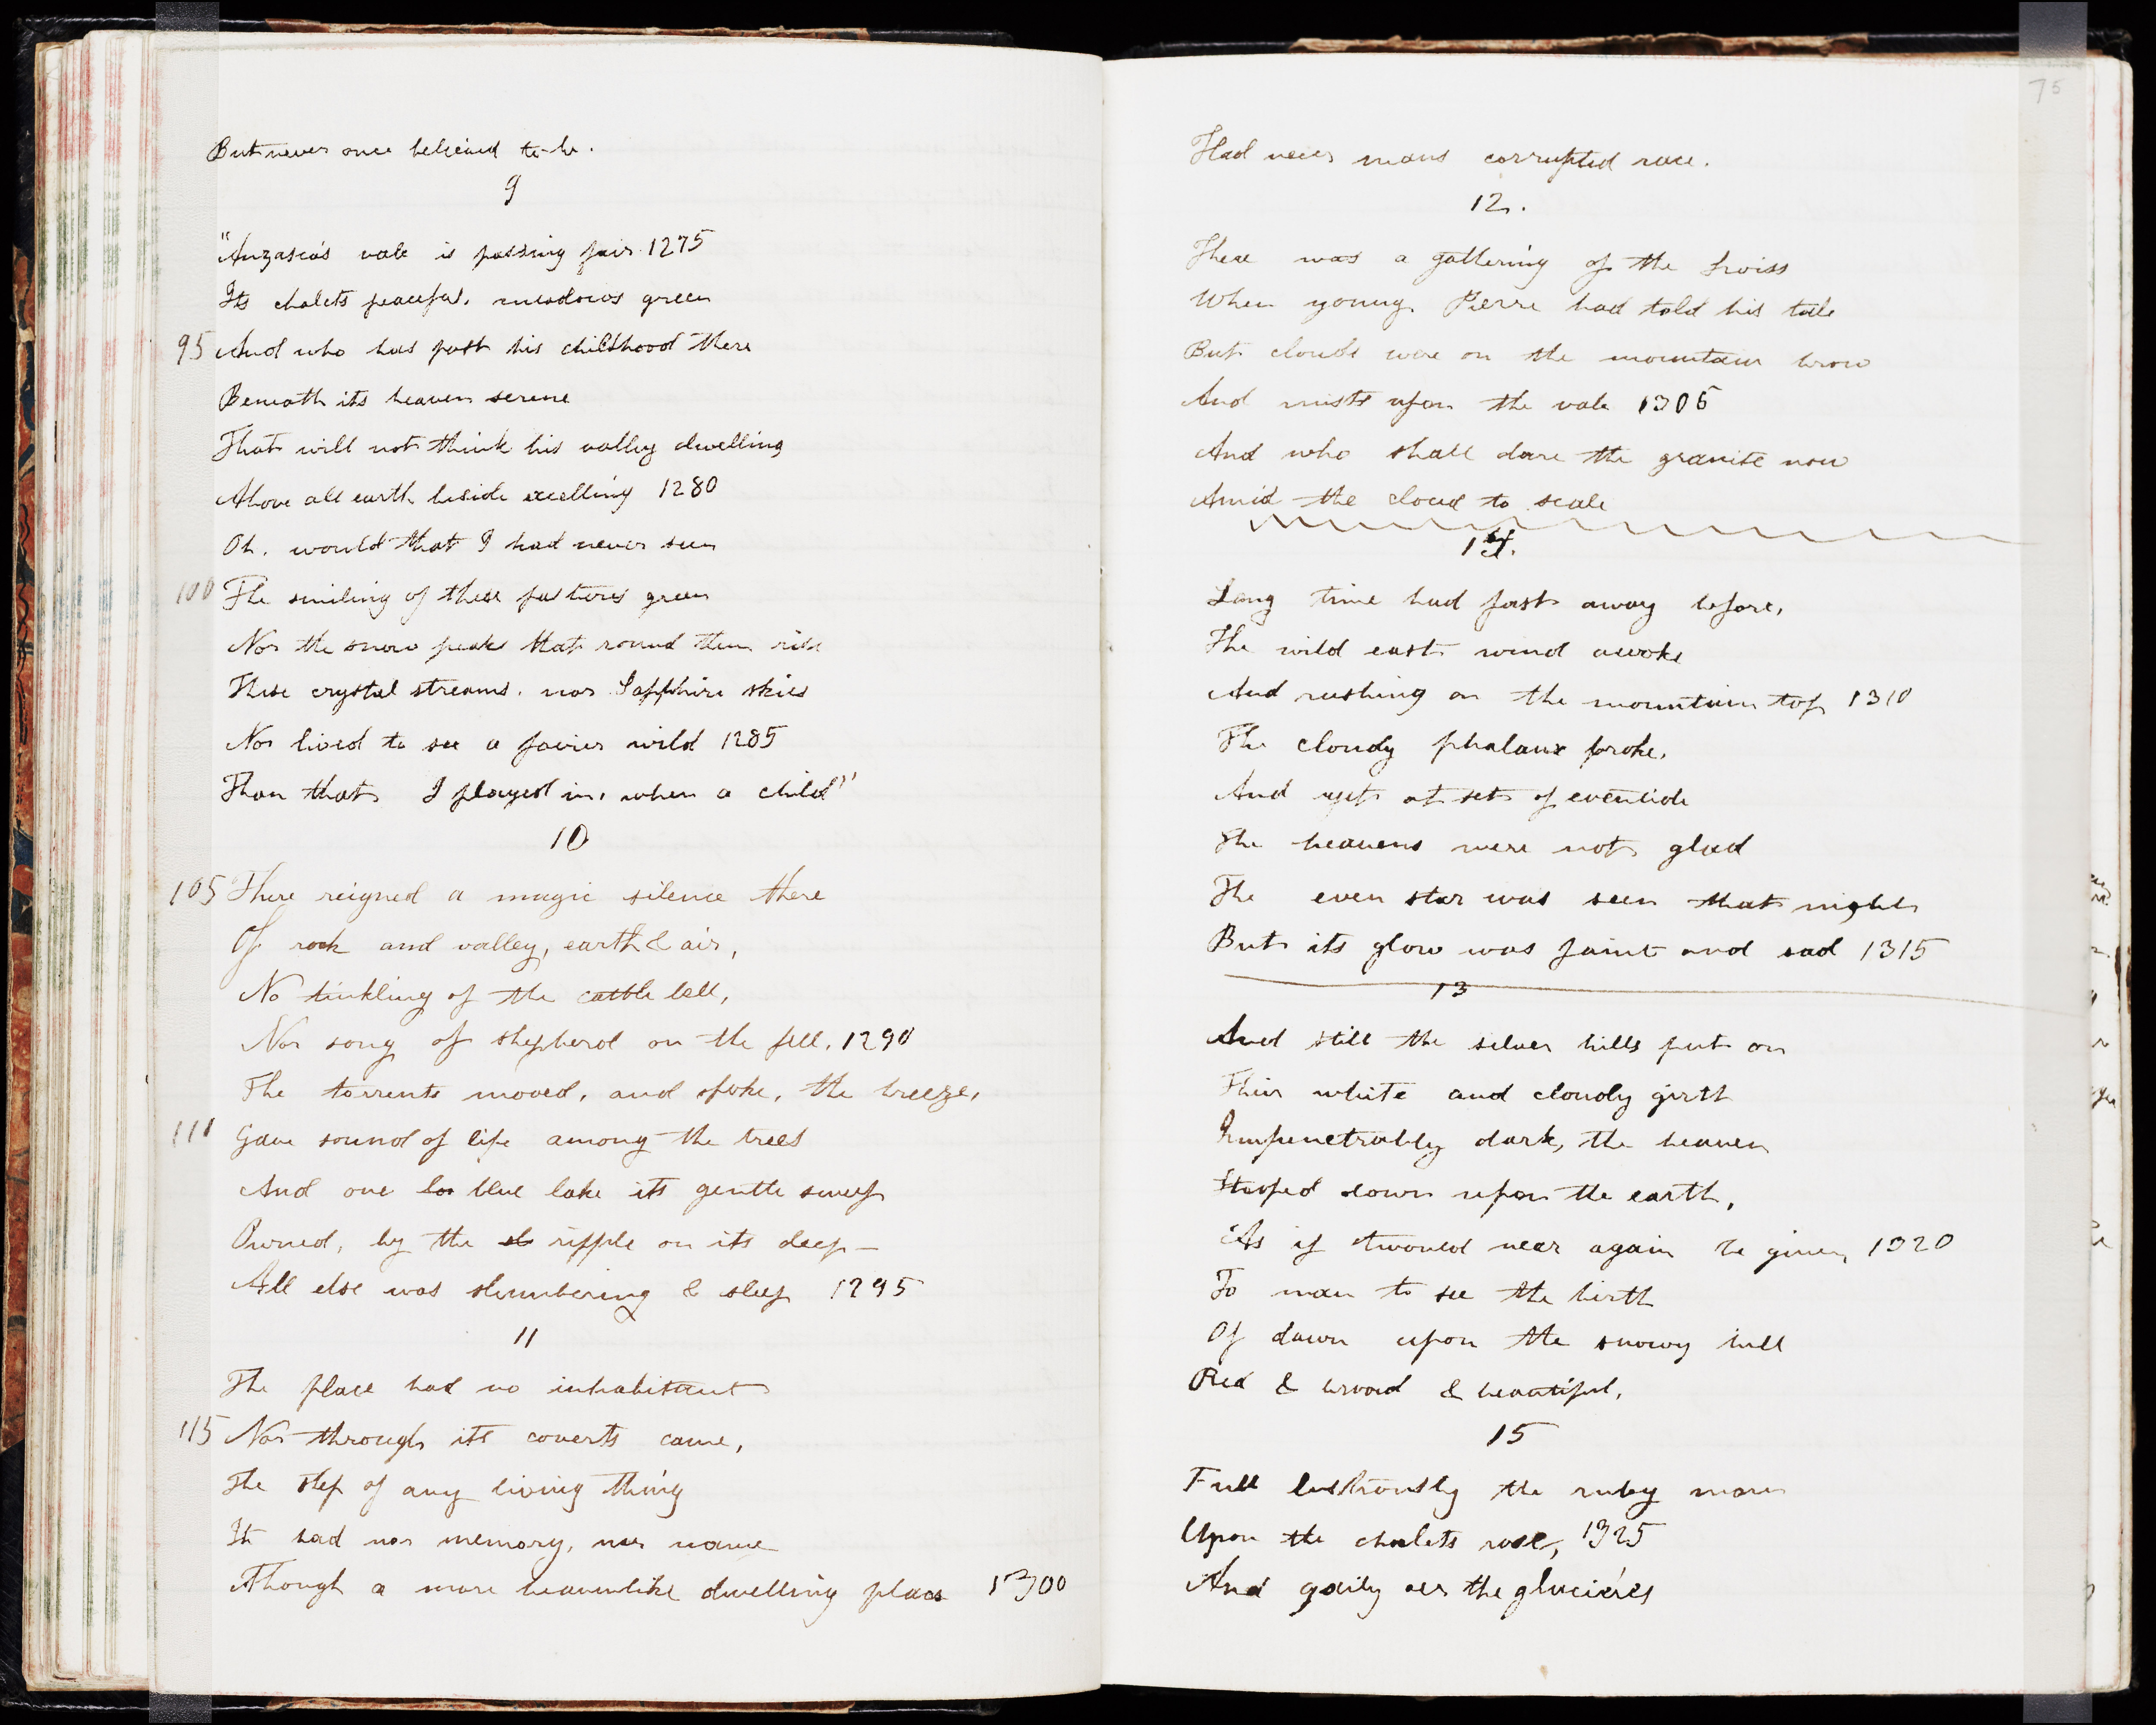 But never once believed to be.
9
"Anzasca's vale is passing fair. 1275
Its chalets peaceful. meadows green
95 And who has past his childhood there
Beneath its heaven serene
That will not think his valley dwelling
Above all earth beside excelling 1280
Oh. would that I had never seen
100 The smiling of these pastures green
Nor the snow peaks that round them rise
These crystal streams. nor Sapphire skies
Nor lived to see a fairer wild 1285
Than that I played in, when a child"
10
105 There reigned a magic silence there
Of rock and valley, earth & air,
No tinkling of the cattle bell,
Nor song of shepherd on the fell. 1290
The torrents moved, and spoke, the breeze,
111 Gave sound of life among the trees
And one blue lake its gentle sweep
Owned, by the ripple on its deep —
All else was slumbering & sleep 1295
11
The place had no inhabitant
115 Nor through its coverts came,
The step of any living thing
It had nor memory, nor name
Though a more heavenlike dwelling place 1300
75
Had never mans corrupted race.
12.
There was a gathering of the Swiss
When young Pierre had told his tale
But clouds were on the mountain brow
And mists upon the vale 1305
And who shall dare the granite now
Amid the cloud to scale
14.
Long time had past away before,
The wild east wind awoke
And rushing on the mountain top 1310
The cloudy phalanx broke.
And yet at set of eventide
The heavens were not glad
The even star was seen that night
But its glow was faint and sad 1315
13
And still the silver hills put on
Their white and cloudy girth
Impenetrably dark, the heaven
Stooped down upon the earth,
As if twould neer again be given 1320
To man to see the birth
Of dawn upon the snowy hill
Red & broad & beautiful,
15
Full lustrously the ruby morn
Upon the chalets rose, 1325
And gaily oer the glaciéres